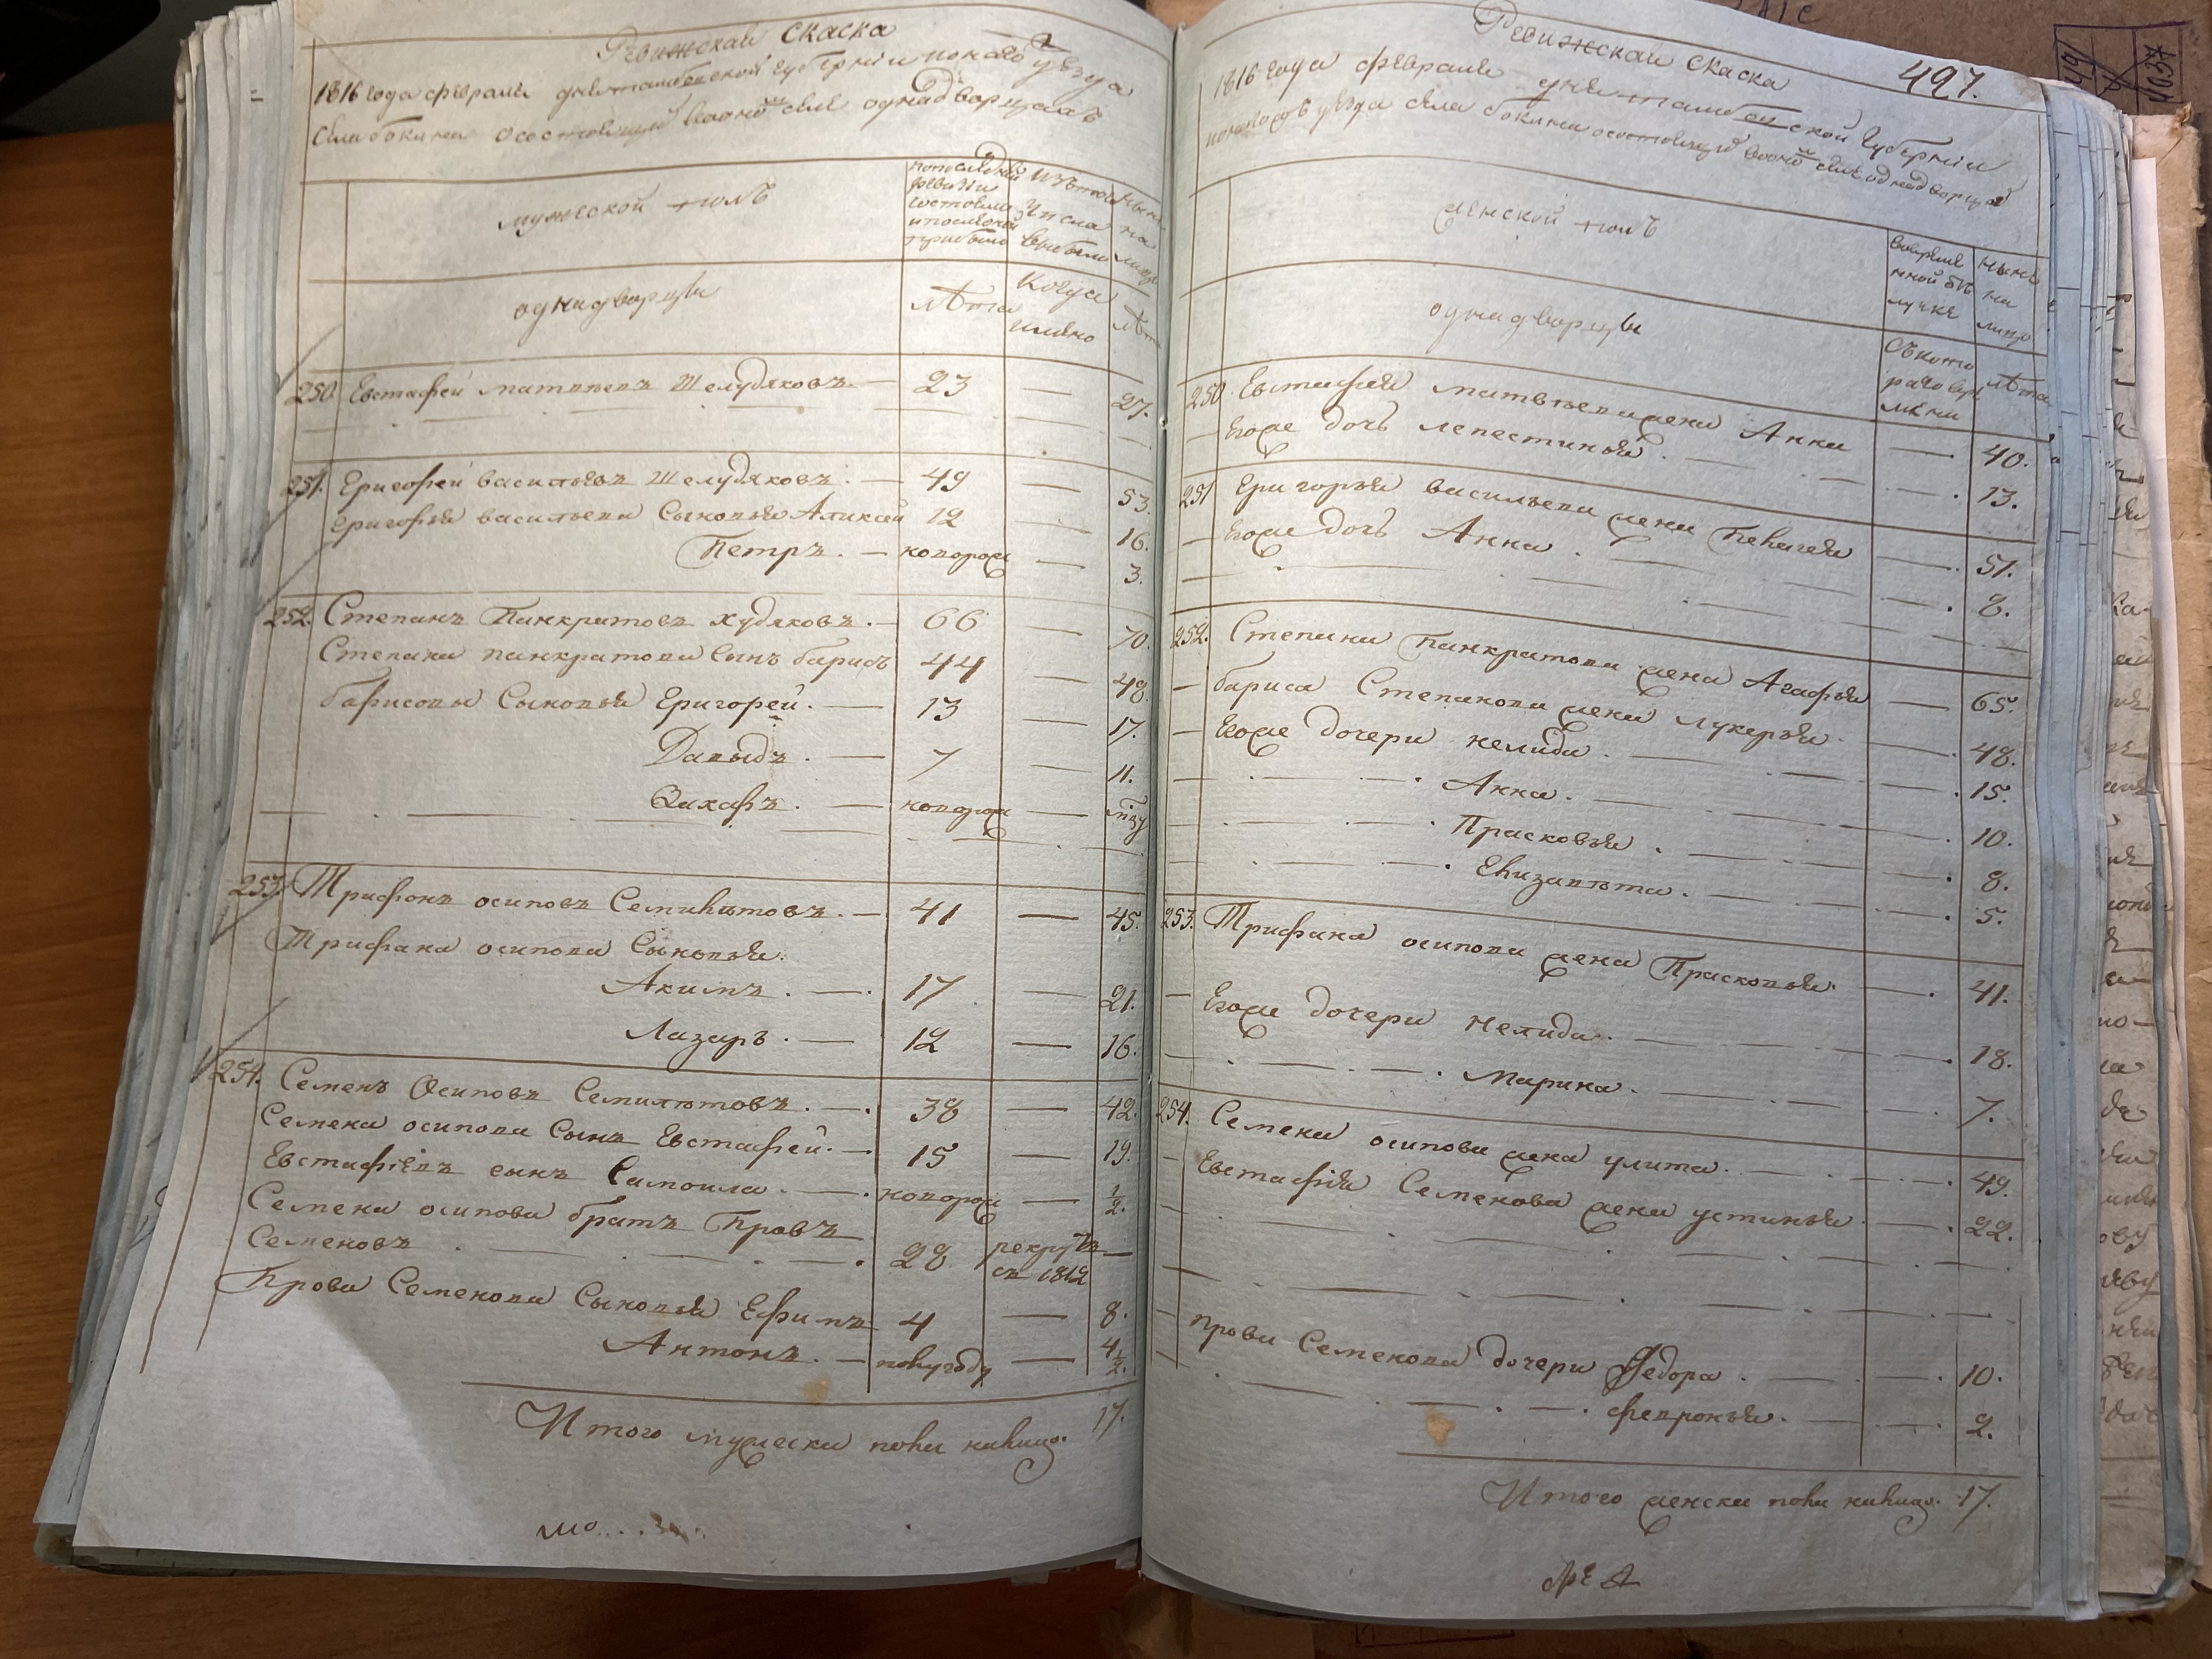 Ревижская скаска
1816 года февраля дня тамбовской губернии уезда
села бокина осостоящих воономъ селе однадворцахъ
мужеской полъ
попоследней ревизии состояло ипоследней прибыло
изътого числа выбыло
ныне на лицо
однадворцы
лѣта
Когда имяно
лѣта
250. Евстафей матвѣевъ Шелудяковъ. — 23 — 27.
251. Григорей васильевъ Шелудяковъ. — 49 — 53.
Григорья васильева Сыновья Аликсей 12 — 16.
Петръ. — новорож — 3.
252. Степанъ Панкратовъ худяковъ. — 66 — 70.
Степана панкратова Сынъ барисъ 44 — 48.
барисовы Сыновья Григорей. — 13 — 17.
Давыдъ. — 7 — 11.
Захаръ. — новорож —
253. Трифонъ осиповъ Семилѣтовъ. — 41 — 45.
Трифана осипова Сыновья.
Акимъ. — 17 — 21.
Лазаръ. — 12 — 16.
254. Семенъ Осиповъ Семилѣтовъ. — 38 — 42.
Семена осипова Сынъ Евстафей. — 15 — 19.
Евстафіевъ сынъ Самоила. — новорож — 1/2.
Семена осипова братъ Провъ
Семеновъ — 28 рекрутъ съ 1812 —
Прова Семенова Сыновья Ефимъ 4 — 8.
Антонъ. — полугоду — 4 1/2.
Итого мужеска пола налицо. 17.
Ревижская Скаска
497.
1816 года февраля дня тамбовской губернии
уезда села бокина осостоящих воономъ селе однадворцахъ
женской полъ
вовременной отлучке
ныне на лицо
однадворцы
Съкоторого времени
лѣта
250 Евстафея матвѣева жена Анна — 40.
— Егоже дочь лепестинья. — 13.
251 Григорья васильева жена Пелагея — 51.
— Егоже дочь Анна. — 8.
252. Степана Панкратова жена Агафья — 65.
— бариса Степанова жена лукерья — 48.
— Егоже дочери нелида. — 15.
Анна. — 10.
Прасковья. — 8.
Елизавѣта. — 5.
253. Трифана осипова жена Прасковья. — 41.
— Егоже дочери Нелида. — 18.
Марина. — 7.
254. Семена осипова жена улита. — 49.
Евстафія Семенова жена устинья. — 22.
прова Семенова дочери Федора. — 10.
февронья. — 2.
Итого женска пола налицо. 17.